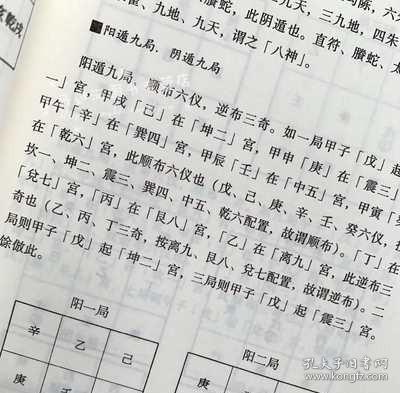 陈，六
三九地、四朱
螣蛇，此阴遁也。直符、螣蛇、太
九地、九天，谓之「八神」。
■阳遁九局．阴遁九局
阳遁九局，顺布六仪，逆布三奇。如一局甲子「戊」起
一」宫，甲戌「己」在「坤二」宫，甲申「庚」在「震三」
甲午「辛」在「巽四」宫，甲辰「壬」在「中五」宫，甲寅「
在「乾六」宫，此顺布六仪也（戊、己、庚、辛、壬、癸六仪，按
坎一、坤二、震三、巽四、中五、乾六配置，故谓顺布）。「丁」在
「兑七」宫，「丙」在「艮八」宫，「乙」在「离九」宫，此逆布三
奇也（乙、丙、丁三奇，按离九、艮八、兑七配置，故谓逆布）。二
局则甲子「戊」起「坤二」宫，三局则甲子「戊」起「震三」宫。
馀倣此。
阳一局
辛 乙 己
庚 壬
阳二局
庚 丙
孔夫子旧书网
www.kongfz.com